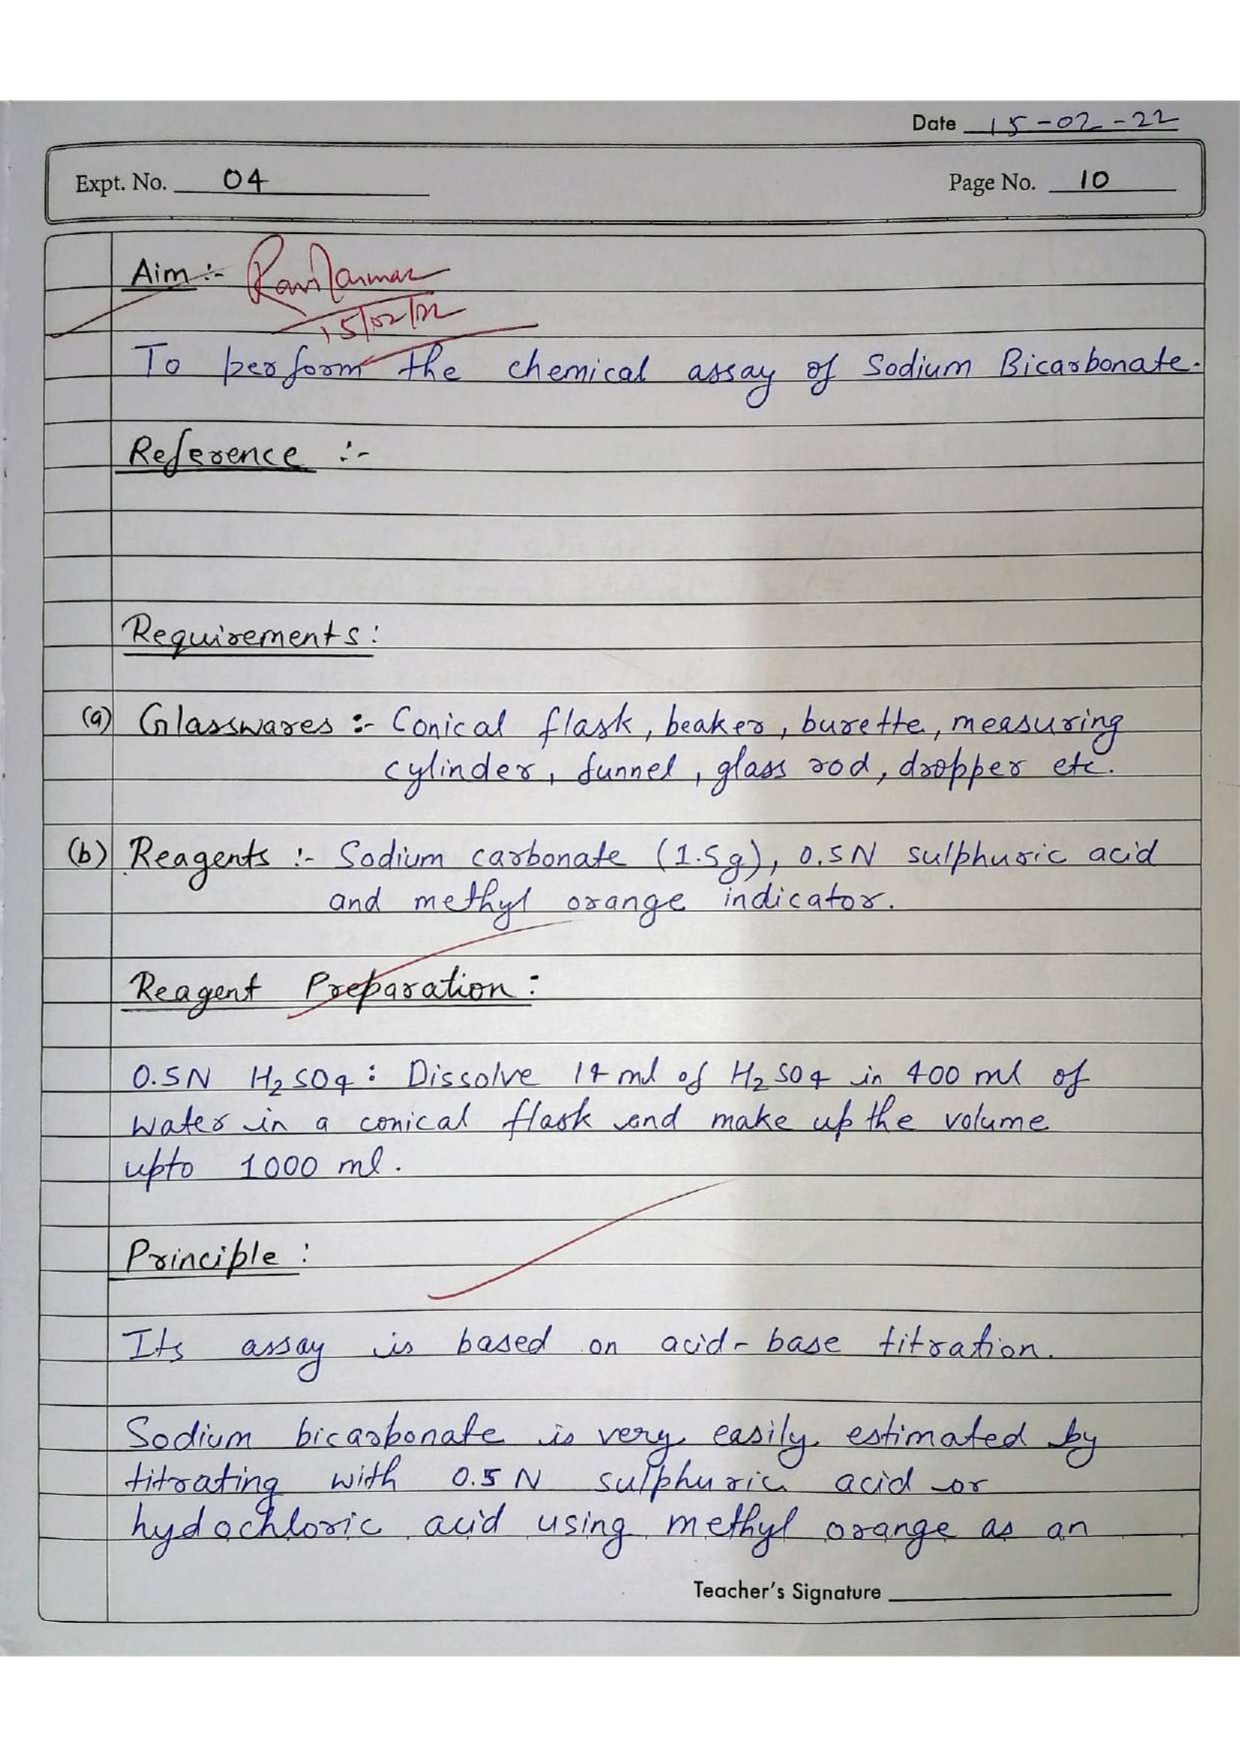 Date 15-02-22
Expt. No. 04
Page No. 10
Aim :-
15/02/22
To perform the chemical assay of Sodium Bicarbonate.
Reference :-
Requirements :
(a) Glasswares :- Conical flask, beaker, burette, measuring
cylinder, funnel, glass rod, dropper etc.
(b) Reagents :- Sodium carbonate (1.5g), 0.5N sulphuric acid
and methyl orange indicator.
Reagent Preparation :
0.5N H2SO4 : Dissolve 14 ml of H2SO4 in 400 ml of
water in a conical flask and make up the volume
upto 1000 ml.
Principle :
Its assay is based on acid-base titration.
Sodium bicarbonate is very easily estimated by
titrating with 0.5 N sulphuric acid or
hydochloric acid using methyl orange as an
Teacher's Signature